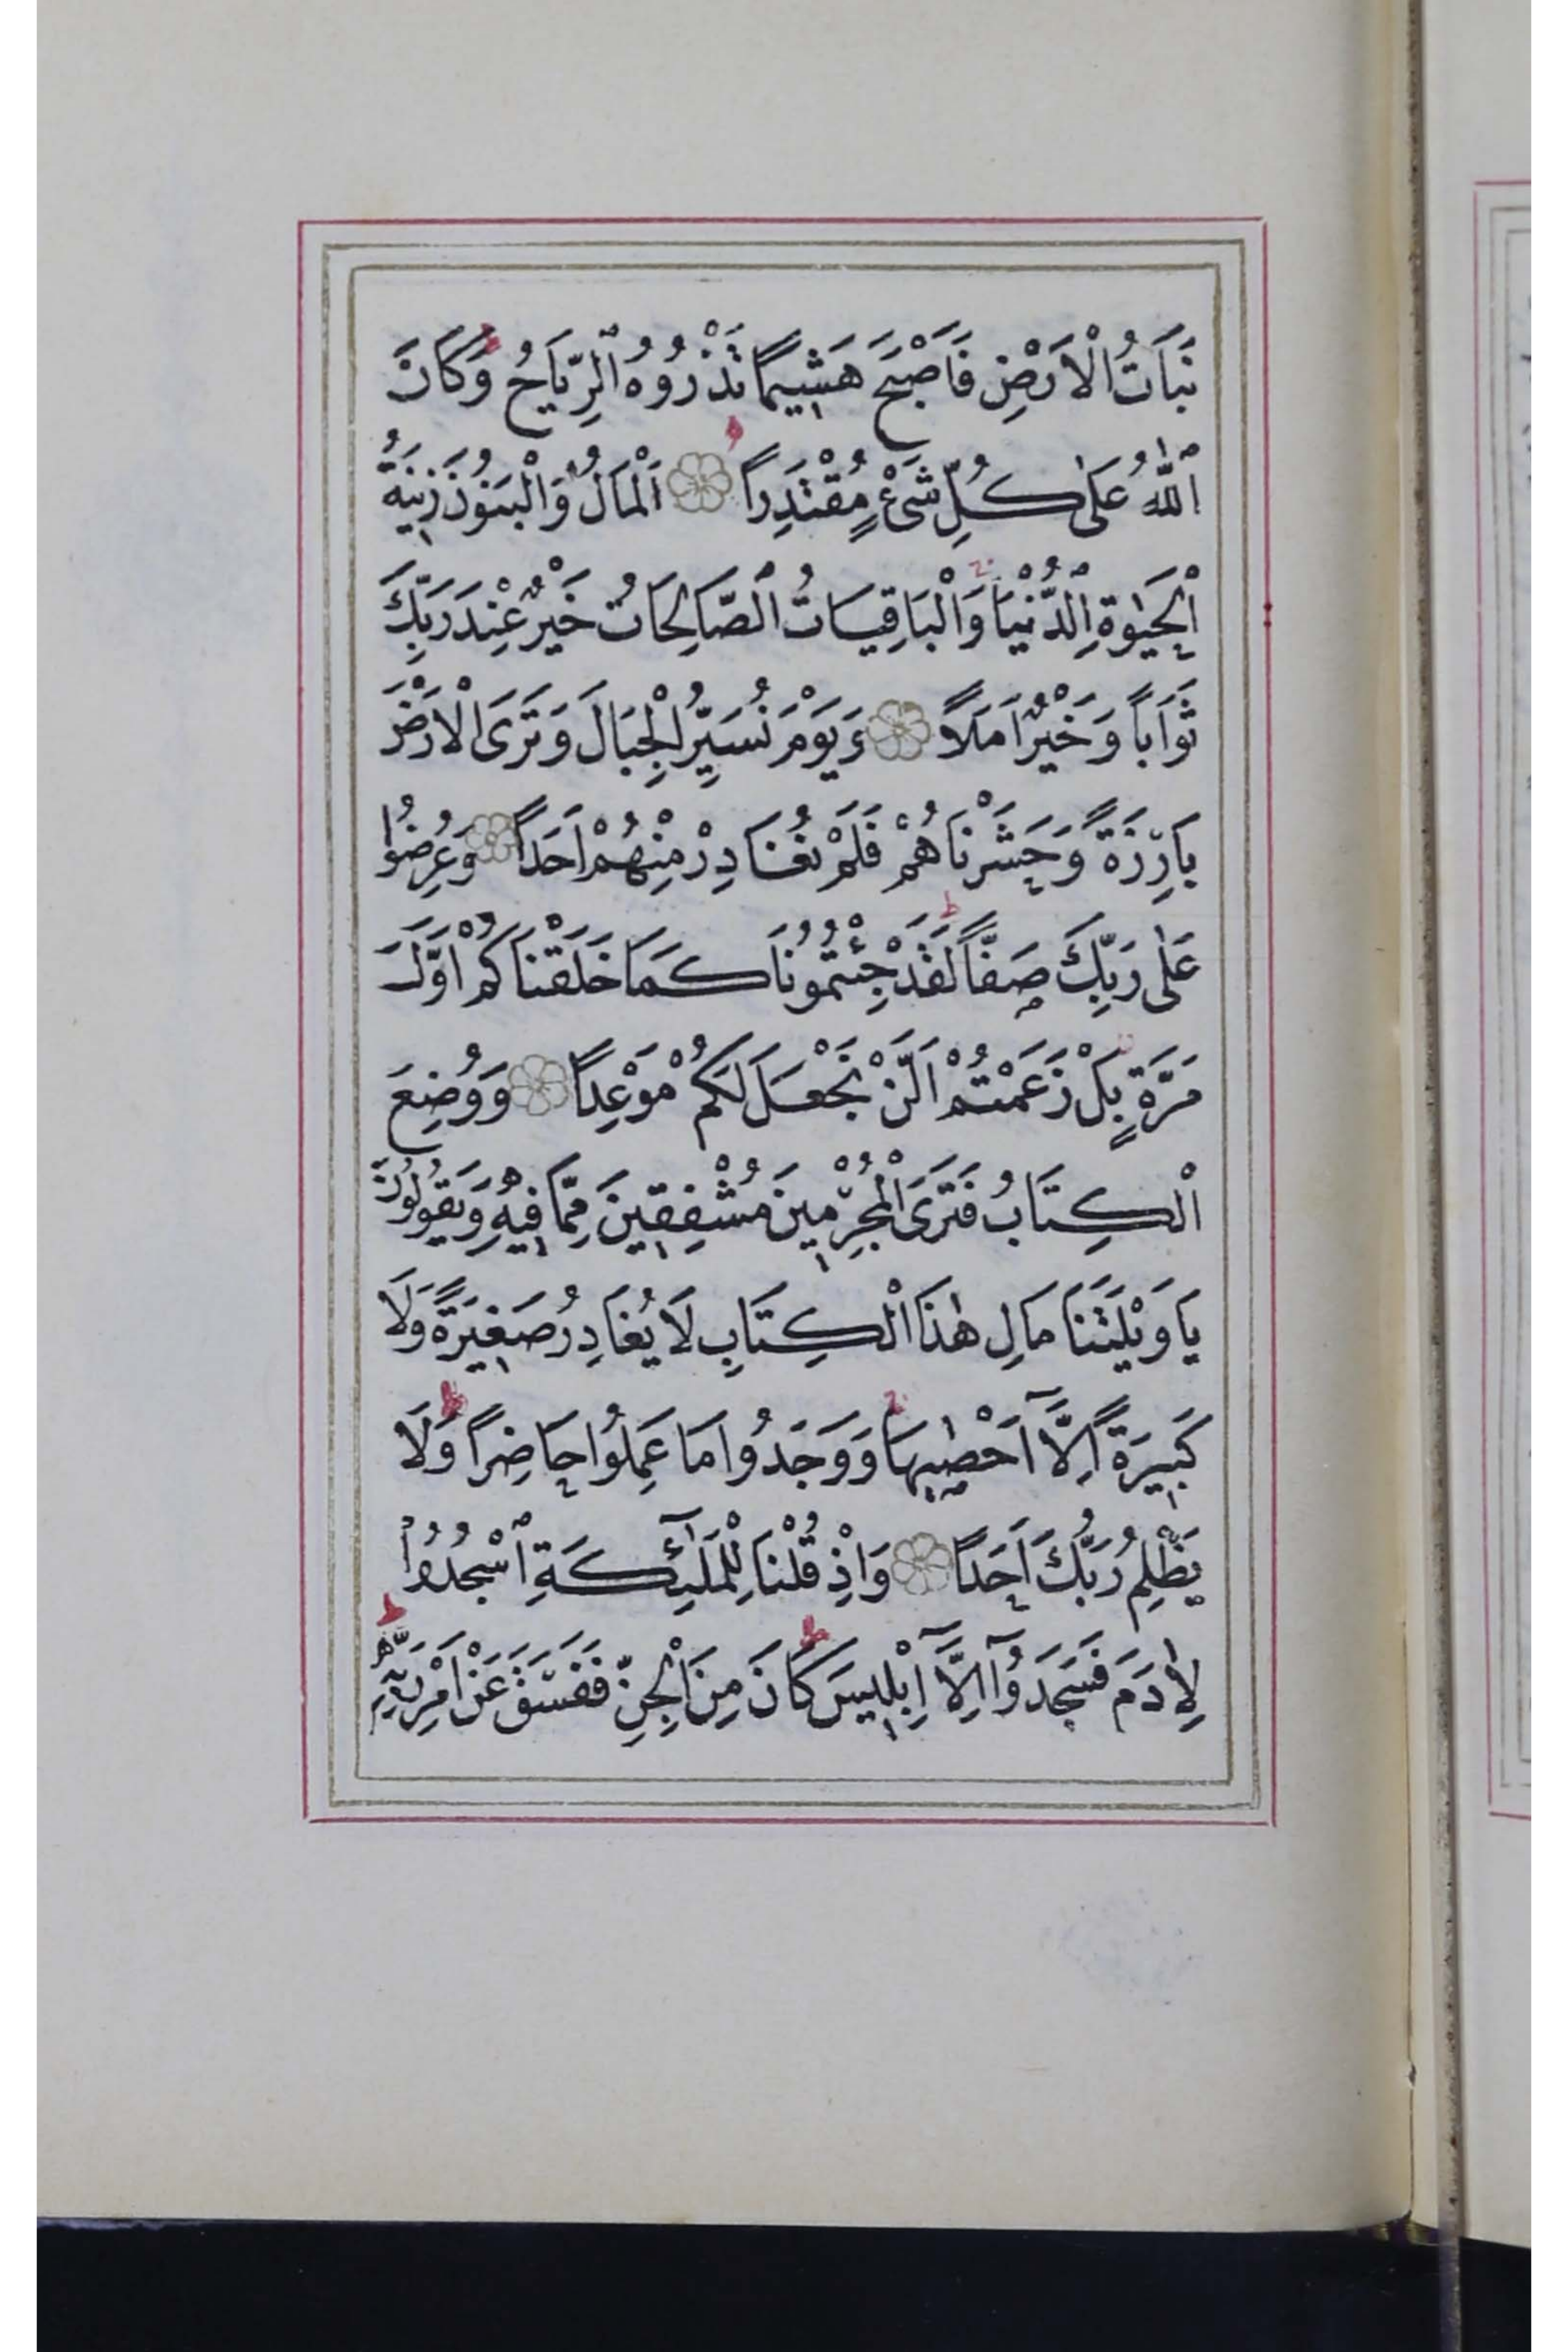 نَبَاتُ الْاَرْضِ فَاَصْبَحَ هَشِيمًا تَذْرُوهُ الرِّيَاحُ وَكَانَ
اللّٰهُ عَلٰى كُلِّ شَيْءٍ مُقْتَدِرًا اَلْمَالُ وَالْبَنُونَ زِينَةُ
الْحَيٰوةِ الدُّنْيَا وَالْبَاقِيَاتُ الصَّالِحَاتُ خَيْرٌ عِنْدَ رَبِّكَ
ثَوَابًا وَخَيْرٌ اَمَلًا وَيَوْمَ نُسَيِّرُ الْجِبَالَ وَتَرَى الْاَرْضَ
بَارِزَةً وَحَشَرْنَاهُمْ فَلَمْ نُغَادِرْ مِنْهُمْ اَحَدًا وَعُرِضُوا
عَلٰى رَبِّكَ صَفًّا لَقَدْ جِئْتُمُونَا كَمَا خَلَقْنَاكُمْ اَوَّلَ
مَرَّةٍ بَلْ زَعَمْتُمْ اَلَّنْ نَجْعَلَ لَكُمْ مَوْعِدًا وَوُضِعَ
الْكِتَابُ فَتَرَى الْمُجْرِمِينَ مُشْفِقِينَ مِمَّا فِيهِ وَيَقُولُونَ
يَا وَيْلَتَنَا مَالِ هٰذَا الْكِتَابِ لَا يُغَادِرُ صَغِيرَةً وَلَا
كَبِيرَةً اِلَّٓا اَحْصٰيهَا وَوَجَدُوا مَا عَمِلُوا حَاضِرًا وَلَا
يَظْلِمُ رَبُّكَ اَحَدًا وَاِذْ قُلْنَا لِلْمَلٰٓئِكَةِ اسْجُدُوا
لِاٰدَمَ فَسَجَدُٓوا اِلَّٓا اِبْلِيسَ كَانَ مِنَ الْجِنِّ فَفَسَقَ عَنْ اَمْرِ رَبِّهِ